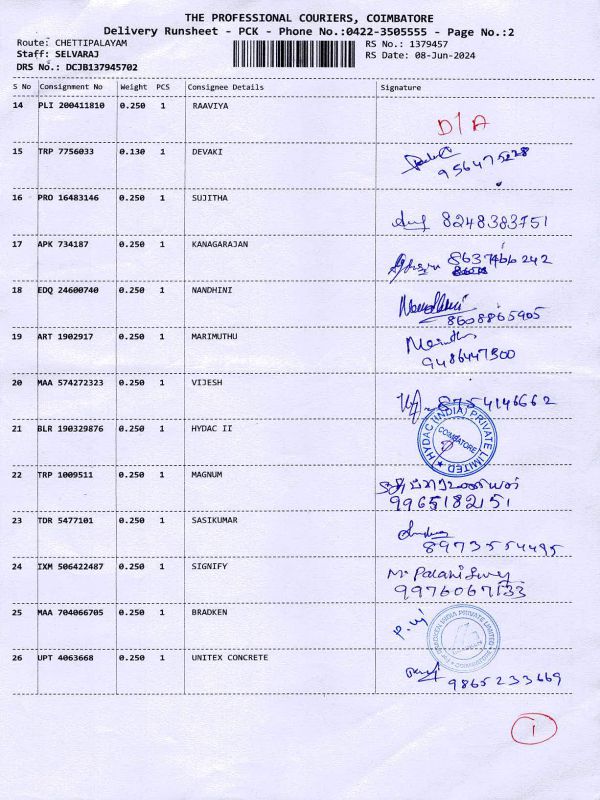 THE PROFESSIONAL COURIERS, COIMBATORE
Delivery Runsheet - PCK - Phone No.:0422-3505555 - Page No.:2
Route: CHETTIPALAYAM
RS No.: 1379457
Staff: SELVARAJ
RS Date: 08-Jun-2024
DRS No.: DCJB137945702
S No Consignment No Weight PCS Consignee Details Signature
14 PLI 200411810 0.250 1 RAAVIYA
D/A
15 TRP 7756033 0.130 1 DEVAKI
16 PRO 16483146 0.250 1 SUJITHA
8248383751
17 APK 734187 0.250 1 KANAGARAJAN
18 EDQ 24600740 0.250 1 NANDHINI
8608865905
19 ART 1902917 0.250 1 MARIMUTHU
20 MAA 574272323 0.250 1 VIJESH
8754146662
21 BLR 190329876 0.250 1 HYDAC II
HYDAC (INDIA) PRIVATE LIMITED
COIMBATORE
22 TRP 1009511 0.250 1 MAGNUM
9965182151
23 TDR 5477101 0.250 1 SASIKUMAR
8973554495
24 IXM 506422487 0.250 1 SIGNIFY
9976067133
25 MAA 704066705 0.250 1 BRADKEN
BRADKEN INDIA PRIVATE LIMITED
COIMBATORE
26 UPT 4063668 0.250 1 UNITEX CONCRETE
9865233669
1